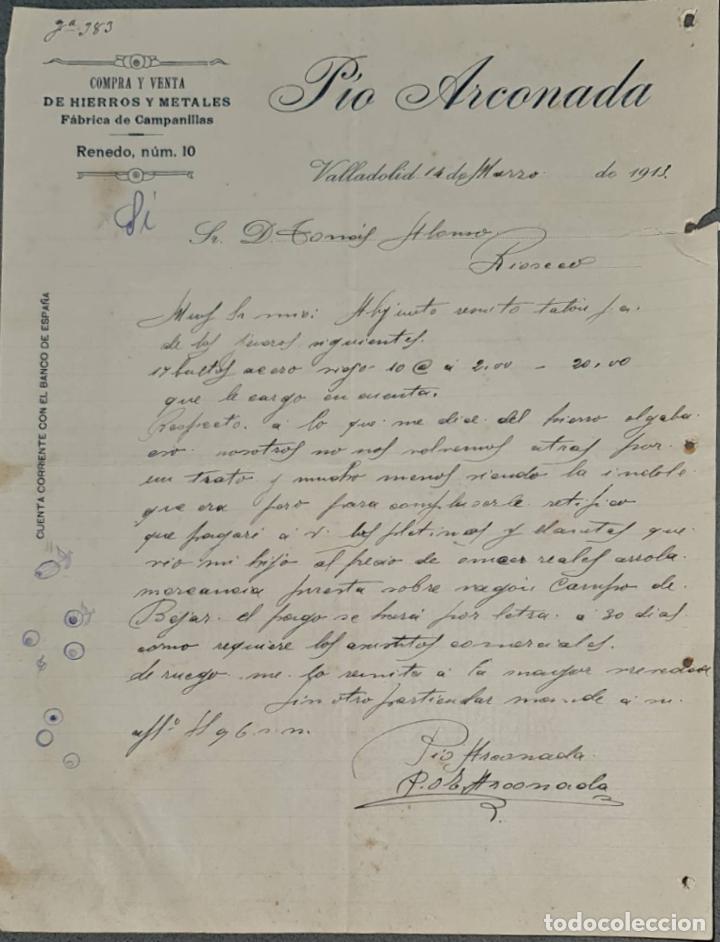 gª 383
COMPRA Y VENTA
DE HIERROS Y METALES
Fábrica de Campanillas
Renedo, núm. 10
Pío Arconada
Valladolid 14 de Marzo de 1913.
Sí
Sr. D. Tomás Alonso
Rioseco
CUENTA CORRIENTE CON EL BANCO DE ESPAÑA
Muy Sr mio: Adjunto remito talón
de los generos siguientes.
17 bultos acero viejo 10 @ á 2.00 - 20.00
que le cargo en cuenta.
Respecto á lo que me dice del hierro
nosotros no nos volvemos atras por
un trato y mucho menos siendo la indole
que era pero para complacerle retifico
que pagaré á v. las pletinas y llantas que
vio mi hijo al precio de once reales arroba
mercancia puesta sobre vagón Campo de
Bejar. el pago se hará por letra á 30 dias
como requiere los comerciales.
de ruego me lo remita á la mayor
sin otro particular mande á su
affº
Pío Arconada
P.O. E. Arconada
todocoleccion.net